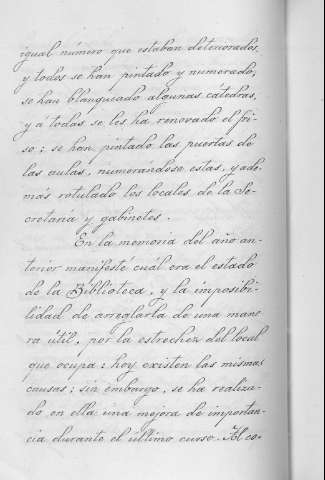 igual número que estaban deteriorados,
y todos se han pintado y numerado;
se han blanqueado algunas cátedras,
y á todas se les ha renovado el pi-
so; se han pintado las puertas de
las aulas, numerándose estas, y ade-
más rotulado los locales de la Se-
cretaria y gabinetes.
En la memoria del año an-
terior manifesté cuál era el estado
de la Biblioteca, y la imposibi-
lidad de arreglarla de una mane
ra útil, por la estrechez del local
que ocupa: hoy existen las mismas
causas; sin embargo, se ha realiza-
do en ella una mejora de importan-
cia durante el último curso. Al co-